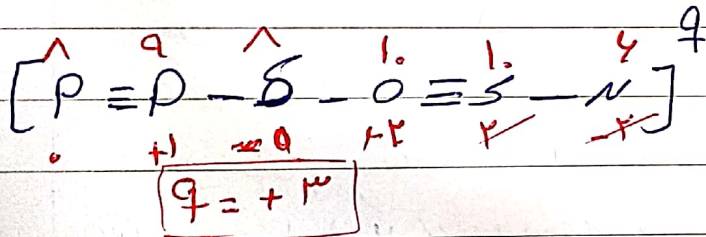 ۸ ۹ ۸ ۱۰ ۱۰ ۶ q
[P ≡ P – S – O ≡ S – N]
۰ +۱ ۰ +۲ ۲ -۲
q = + ۳